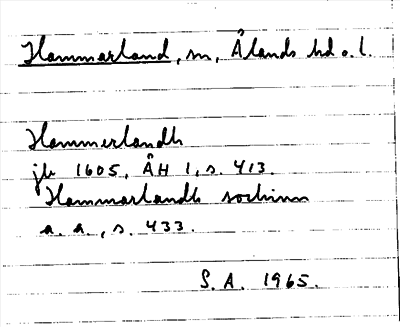 Hammarland, sn, Ålands hd o. l.
Hammerlandh
jb 1605, ÅH 1, s. 413.
Hammarlandh sochnnn
a. a., s. 433.
S. A. 1965.